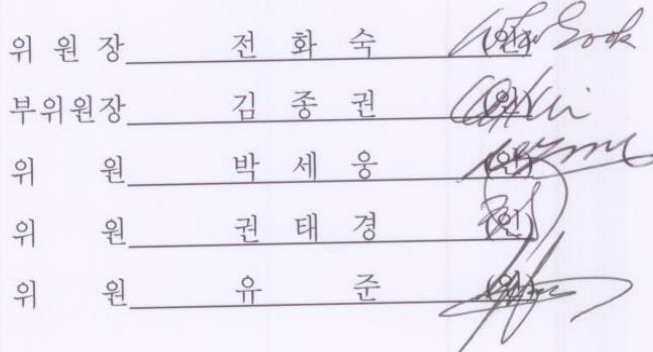 위 원 장 전 화 숙 (인)
부위원장 김 종 권 (인)
위 원 박 세 웅 (인)
위 원 권 태 경 (인)
위 원 유 준 (인)